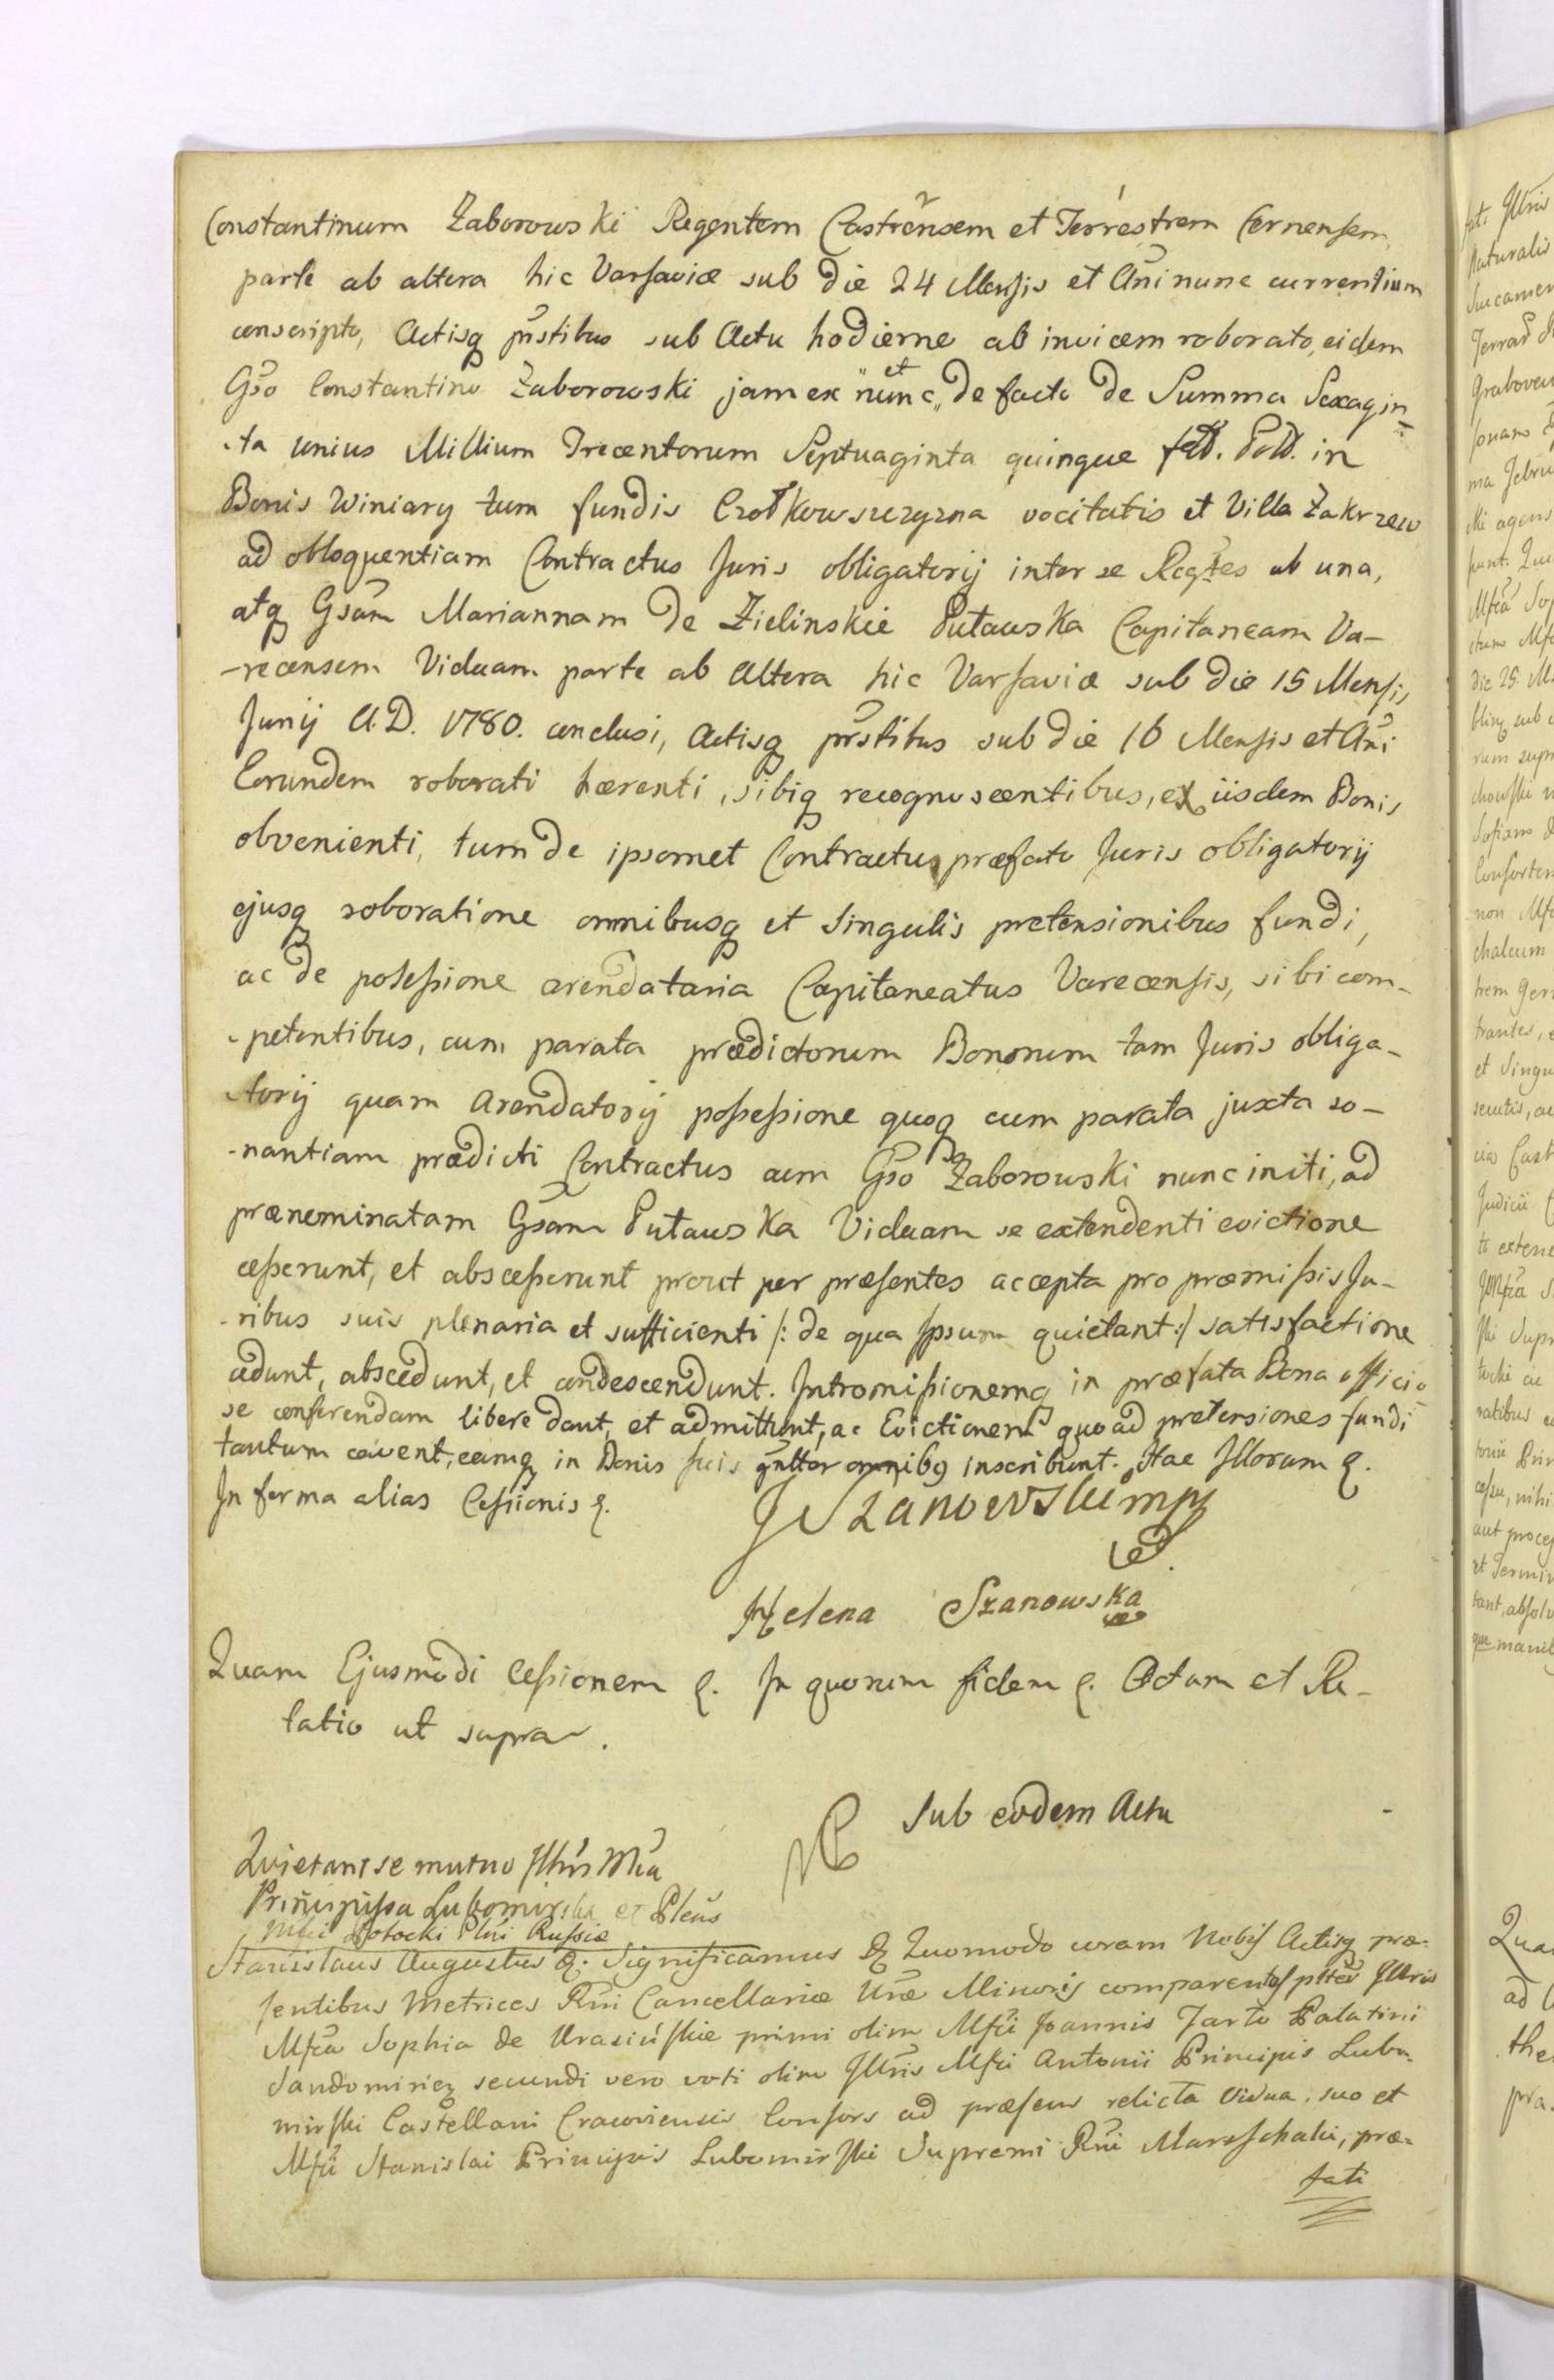 Constantinum Zaborowski Regentem Castrensem et Terrestrem Cernensem,
parte ab altera hic Varsaviæ sub die 24 Mensis et Añi nunc currentium
conscripto, Actisq p̃ntibus sub Actu hodierno ab invicem roborato, eidem
Gso Constantino Zaborowski jam ex et nunc de facto de Summa Sexagin=
-ta unius Millium Trecentorum Septuaginta quinque flō. Pold. in
Bonis Winiary tum fundis Czotkowszczyzna vocitatis et Villa Zakrzew
ad obloquentiam Contractus Juris obligatorij inter se Rcgtes ab una,
atq Gsam Mariannam de Zielinskie Putawska Capitaneam Va-
-recensem Viduam parte ab altera hic Varsaviæ sub die 15 Mensis
Junij A.D. 1780. conclusi, Actisq p̃rstibus sub die 16 Mensis et Añi
Eorundem roborati hærenti, sibiq recognoscentibus, ex iisdem Bonis
obvenienti, tum de ipsomet Contractu præfato Juris obligatorij
ejusq roboratione omnibusq et singulis pretensionibus fundi,
ac de posessione arendataria Capitaneatus Varecensis, sibi com-
-petentibus, cum parata prædictorum Bonorum tam Juris obliga-
-torij quam arendatorij possessione quoq cum parata juxta so-
-nantiam prædicti Contractus cum Gso Zaborowski nunc initi, ad
prænominatam Gsam Putawska Viduam se extendenti evictione
cesserunt, et abscesserunt prout per præsentes accepta pro præmissis Ju-
-ribus suis plenaria et sufficienti /: de qua Ipsum quietant :/ satisfactione
cedunt, abscedunt, et condescendunt. Intromissionemq in præfata Bona officio
se conferendam libere dant, et admittunt, ac Evictionem quoad pretensiones fundi
tantum cavent, eamq in Bonis suis gn̄lter omnibg inscribunt. Hac Illorum &.
In forma alias Cessionis &. JSzanowski mp
Helena Szanowska
Quam Ejusmodi Cessionem &. In quorum fidem &. Actum et Re-
latio ut supra.
Sub eodem Actu
Quietant se mutuo Illris Mfca
Principissa Lubomirska et Plens
Mfci Potocki Plni Russiæ
Stanislaus Augustus &. Significamus &. Quomodo coram Nobis Actisq præ-
sentibus Metrices Rñi Cancellariæ Uræ Minoris comparentes p̃lter Illris
Mfca Sophia de Krasińskie primi olim Mfci Joannis Tarło Palatini
Sandomiriensis secundi vero voti olim Illris Mfci Antonii Principis Lubo-
mirski Castellani Cracoviensis Consors ad præsens relicta Vidua, suo et
Mfci Stanislai Principis Lubomirski Supremi Rñi Mareschalci, præ-
fati